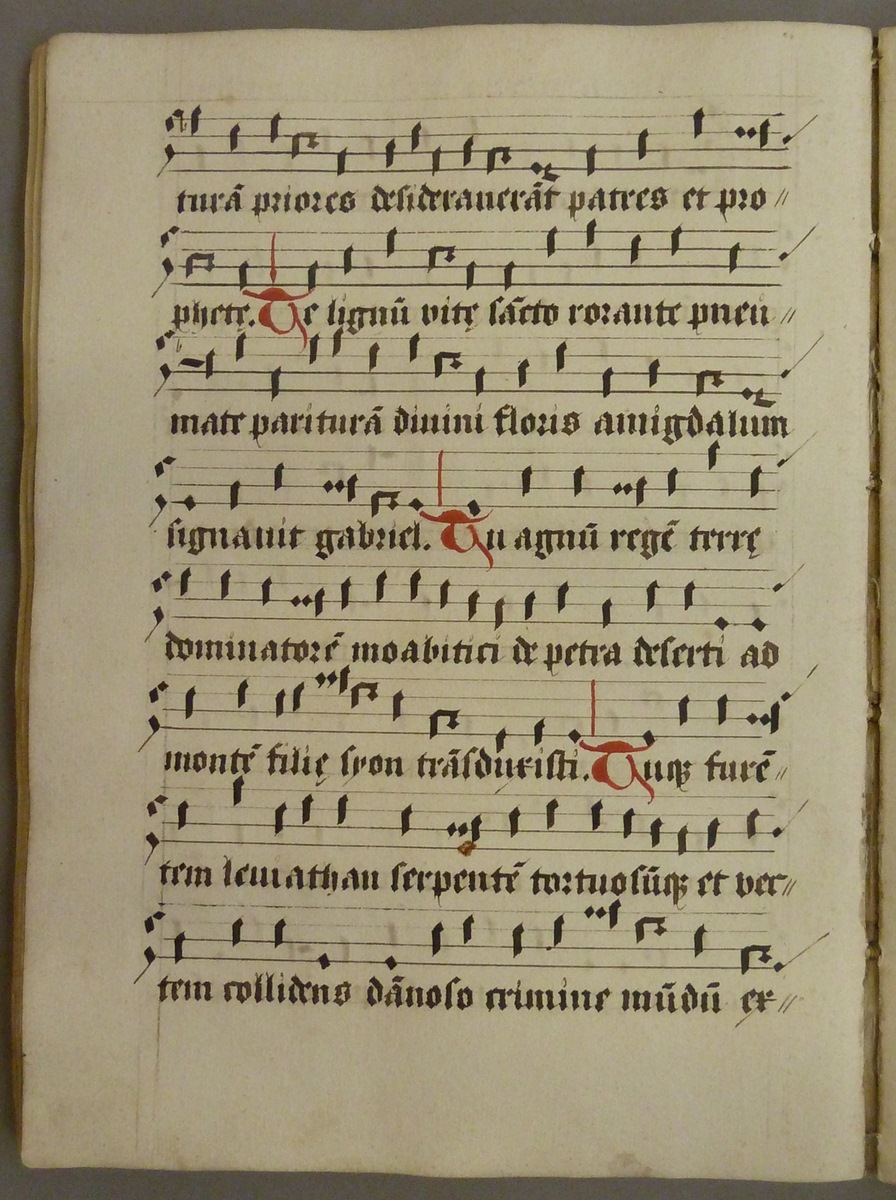 turā priores desiderauerāt patres et pro//
phetę. Te lignū vitę sācto rorante pneu//
mate pariturā diuini floris amigdalum̄
signauit gabriel. Tu agnū regē terrę
dominatorē moabitici de petra deserti ad
montē filię syon trāsduxisti. Tuqꝫ furē//
tem leuiathan serpentē tortuosūqꝫ et vec//
tem collidens dānoso crimine mūdū ex//